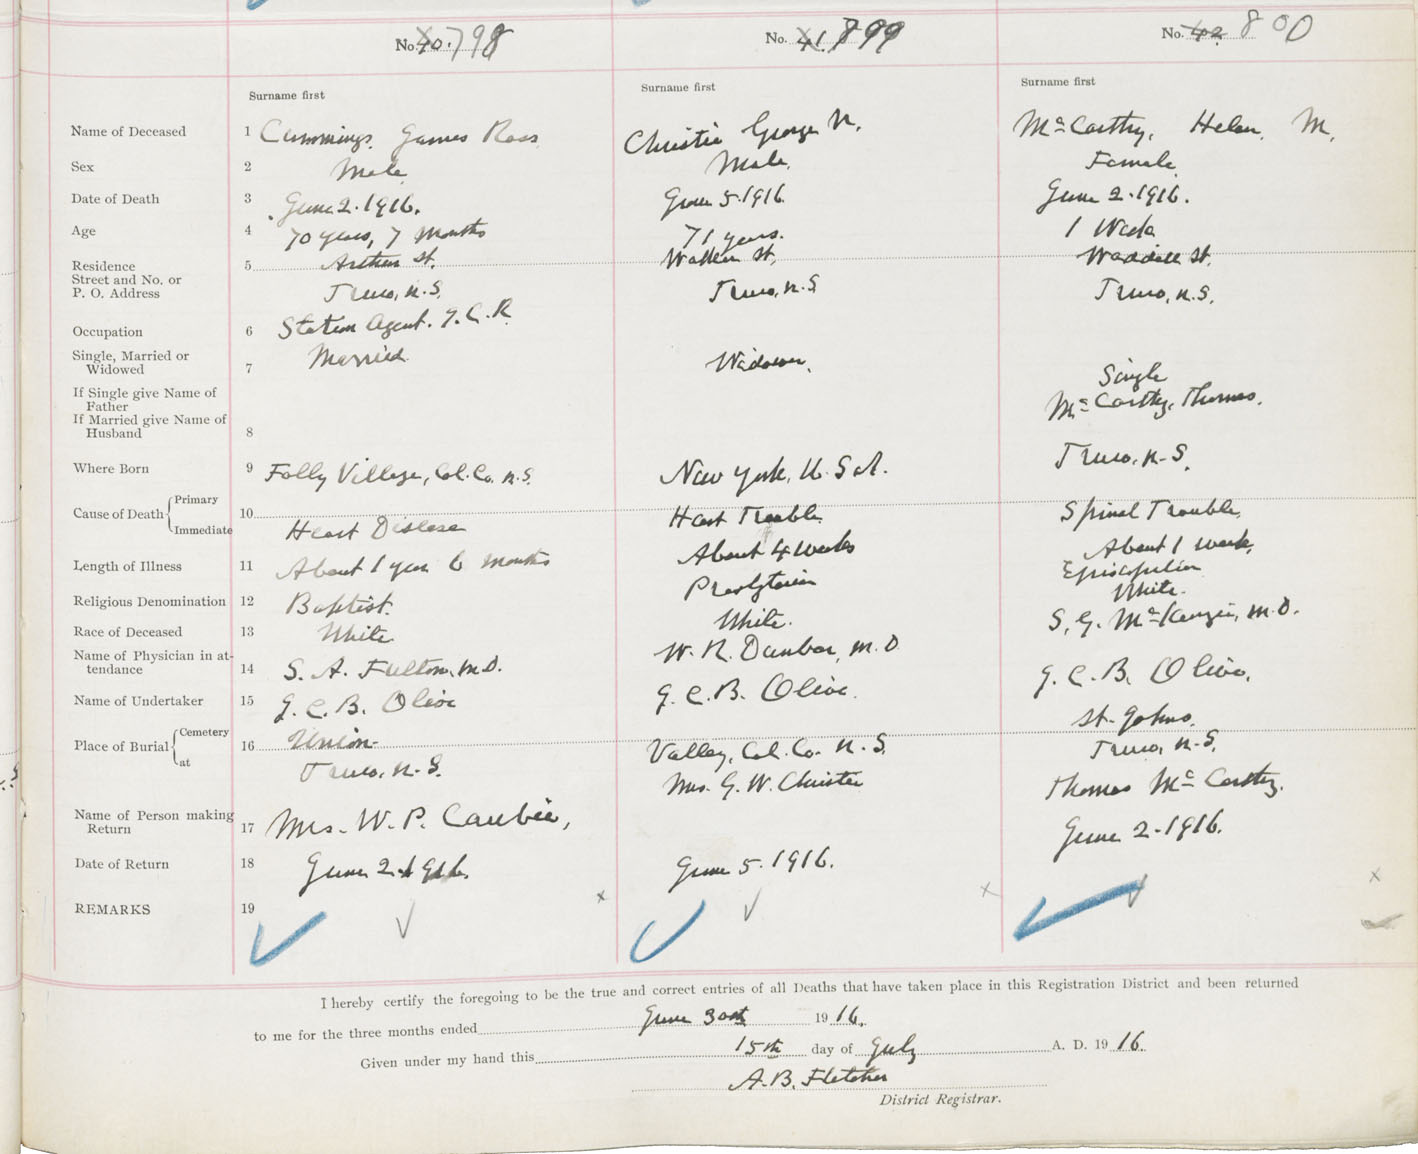 No. 40. 798
No. 41. 799
No. 42. 800
Surname first
Surname first
Surname first
Name of Deceased 1 Cummings, James Ross
Christie George W.
McCarthy, Helen M.
Sex 2 Male
Male
Female
Date of Death 3 June 2. 1916.
June 5. 1916
June 2. 1916.
Age 4 70 years, 7 Months
71 years.
1 Week
Residence
Street and No. or
P. O. Address
5 Arthur St.
Truro, N.S.
Walker St.
Truro, N.S
Waddell St.
Truro, N.S.
Occupation 6 Station Agent. I.C.R
Single, Married or
Widowed
7 Married
Widower,
Single
If Single give Name of
Father
If Married give Name of
Husband
8
McCarthy, Thomas.
Where Born 9 Folly Village, Col. Co. N.S.
New York, U.S.A.
Truro, N.S.
Cause of Death Primary
Immediate
10 Heart Disease
Heart Trouble
Spinal Trouble,
Length of Illness 11 About 1 year 6 months
About 4 weeks
About 1 week,
Religious Denomination 12 Baptist.
Presbyterian
Episcopalian
Race of Deceased 13 White
White.
White.
Name of Physician in at-
tendance
14 S. A. Fulton, M.D.
W. R. Dunbar, M.D
S. G. McKenzie, M.D.
Name of Undertaker 15 J. C. B. Olive
J. C. B. Olive.
J. C. B. Olive.
Place of Burial Cemetery
at
16 Union
Truro, N.S.
Valley, Col. Co. N.S.
St. Johns.
Truro, N.S.
Name of Person making
Return
17 Mrs. W. P.
Mrs. G. W. Christie
Thomas McCarthy.
Date of Return 18 June 2. 1916.
June 5. 1916.
June 2. 1916.
REMARKS 19
I hereby certify the foregoing to be the true and correct entries of all Deaths that have taken place in this Registration District and been returned
to me for the three months ended June 30th 1916.
Given under my hand this 15th day of July A. D. 1916.
A. B. Fletcher
District Registrar.